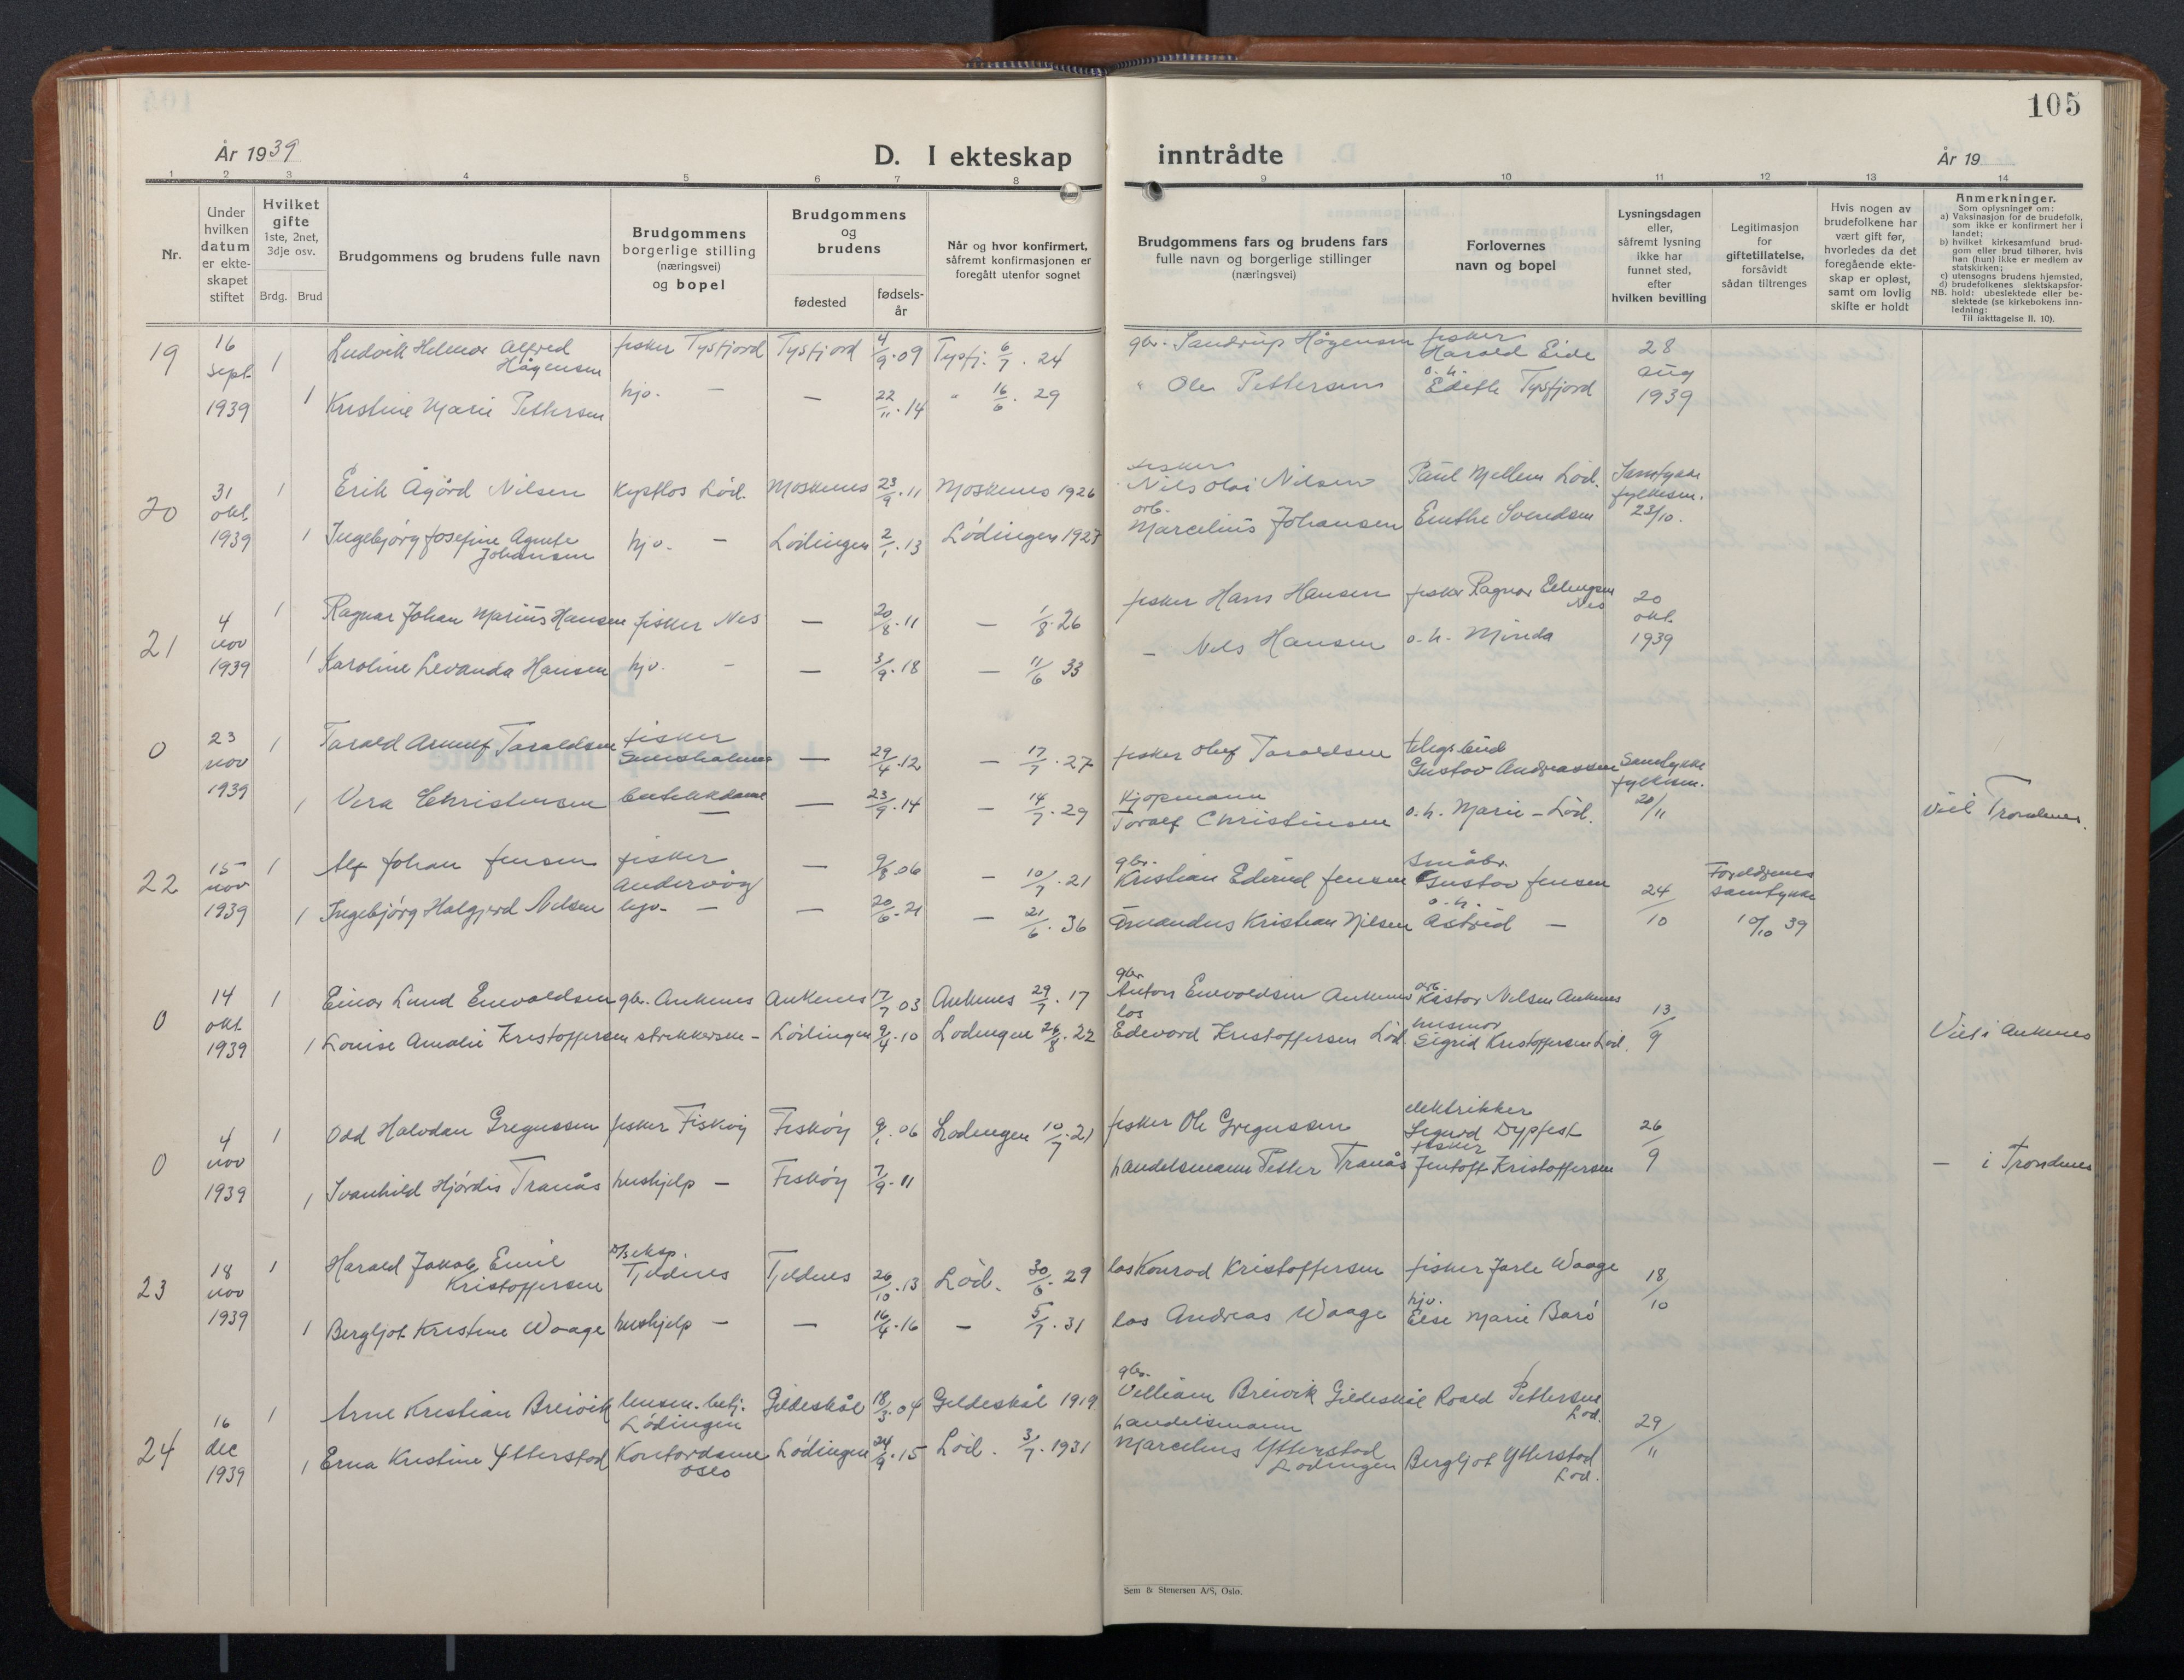 105
År 1939
D. I ekteskap inntrådte
År 19
1 2 3 4 5 6 7 8 9 10 11 12 13 14
Nr.
Under hvilken datum er ekteskapet stiftet
Hvilket gifte
1ste, 2net, 3dje osv.
Brdg. Brud
Brudgommens og brudens fulle navn
Brudgommens borgerlige stilling (næringsvei) og bopel
Brudgommens og brudens
fødested
fødselsår
Når og hvor konfirmert, såfremt konfirmasjonen er foregått utenfor sognet
Brudgommens fars og brudens fars fulle navn og borgerlige stillinger (næringsvei)
Forlovernes navn og bopel
Lysningsdagen eller, såfremt lysning ikke har funnet sted, efter hvilken bevilling
Legitimasjon for giftetillatelse, forsåvidt sådan tiltrenges
Hvis nogen av brudefolkene har vært gift før, hvorledes da det foregående ekteskap er opløst, samt om lovlig skifte er holdt
Anmerkninger.
Som oplysninger om:
a) Vaksinasjon for de brudefolk, som ikke er konfirmert her i landet;
b) hvilket kirkesamfund brudgom eller brud tilhører, hvis han (hun) ikke er medlem av statskirken;
c) utensogns brudens hjemsted,
d) brudefolkenes slektskapsforhold: ubeslektede eller beslektede (se kirkebokens innledning:
NB.
Til iakttagelse II. 10).
19 16 sept. 1939 1 Ludvik Helmor Alfred Hågensen fisker Tysfjord Tysfjord 4/9.09 Tysfj. 6/7.24 gbr. Sandrup Hågensen fisker Harald Eide 28 aug 1939
1 Kristine Marie Pettersen hjv. — — 22/11.14 " 16/6.29 " Ole Pettersen o.h. Edith Tysfjord
20 31 okt. 1939 1 Erik Ågård Nilsen Kystlos Lød. Moskenes 23/9.11 Moskenes 1926 fisker Nils Olai Nilsen Paul Mellem Lød. Samtykke fylkesm. 23/10.
1 Ingebjørg Josefine Agnete Johansen hjv. — Lødingen 2/1.13 Lødingen 1927 arb. Marcelius Johansen Emthe Svendsen
21 4 nov 1939 1 Ragnar Johan Marius Hansen fisker Nes — 20/8.11 — 1/8.26 fisker Hans Hansen fisker Ragnar Ellingsen Nes 20 okt. 1939
1 Karoline Levanda Hansen hjv. — — 3/9.18 — 11/6 33 — Nils Hansen o.h. Minda
0 23 nov 1939 1 Tarald Arnulf Taraldsen fisker — 29/4.12 — 17/7.27 fisker Oluf Taraldsen telegr.bud Gustav Andreassen Samtykke fylkesm. 20/11
1 Vera Christensen butikkdame — — 23/9.14 — 14/7.29 Kjøpmann Toralf Christensen o.h. Marie - Lød. Viet Trondenes.
22 15 nov 1939 1 Alf Johan Jensen fisker Andervåg — 9/8.06 — 10/7.21 gbr. Kristian Edvind Jensen småbr. Gustav Jensen 24/10 Foreldrenes samtykke 10/10 39
1 Ingebjørg Halgjerd Nilsen hjv. — — 20/6.21 — 21/6.36 Amandus Kristian Nilsen o.h. Astrid —
0 14 okt. 1939 1 Einar Lund Enevoldsen gbr. Ankenes Ankenes 17/7 03 Ankenes 29/7.17 gbr. Anton Enevoldsen Ankenes arb. Kastor Nilsen Ankenes 13/9
1 Louise Amalie Kristoffersen strikkerske - Lødingen 9/4.10 Lødingen 26/8.22 los Edevard Kristoffersen Lød. husmor Sigrid Kristoffersen Lød. Viet i Ankenes
0 4 nov 1939 1 Odd Halvdan Gregussen fisker Fiskøy Fiskøy 9/1.06 Lødingen 10/7.21 fisker Ole Gregussen elektrikker Sigurd Dypfest 26/9
1 Svanhild Hjørdis Tranås hushjelp — Fiskøy 7/9.11 handelsmann Petter Tranås fisker Jentoft Kristoffersen — i Trondenes
23 18 nov 1939 1 Harald Jakob Emil Kristoffersen D/S eksp. Tjeldnes Tjeldnes 26/10.13 Lød. 30/6.29 los Konrad Kristoffersen fisker Jarle Waage 18/10
1 Bergljot Kristine Waage hushjelp — — 16/4.16 — 5/7.31 los Andreas Waage hjv. Else Marie Barø
24 16 dec 1939 1 Arne Kristian Breivik lensm. betj. Lødingen Gildeskål 18/3.04 Gildeskål 1919 gbr. Villiam Breivik Gildeskål Roald Pettersen Lød. 29/11
1 Erna Kristine Ytterstad Kontordame Oslo Lødingen 24/9.15 Lød. 3/7.1931 handelsmann Marcelius Ytterstad Lødingen Bergljot Ytterstad Lød.
Sem & Stenersen A/S, Oslo.